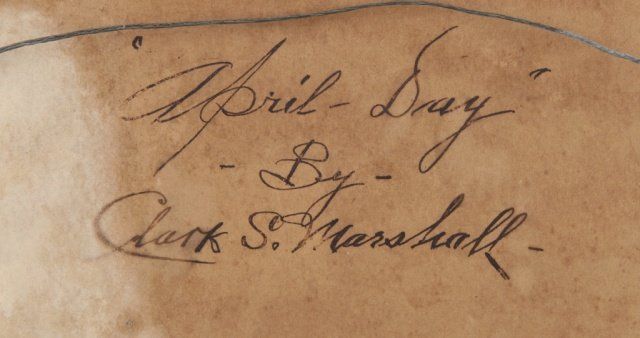 "April - Day"
- By -
Clark S. Marshall -